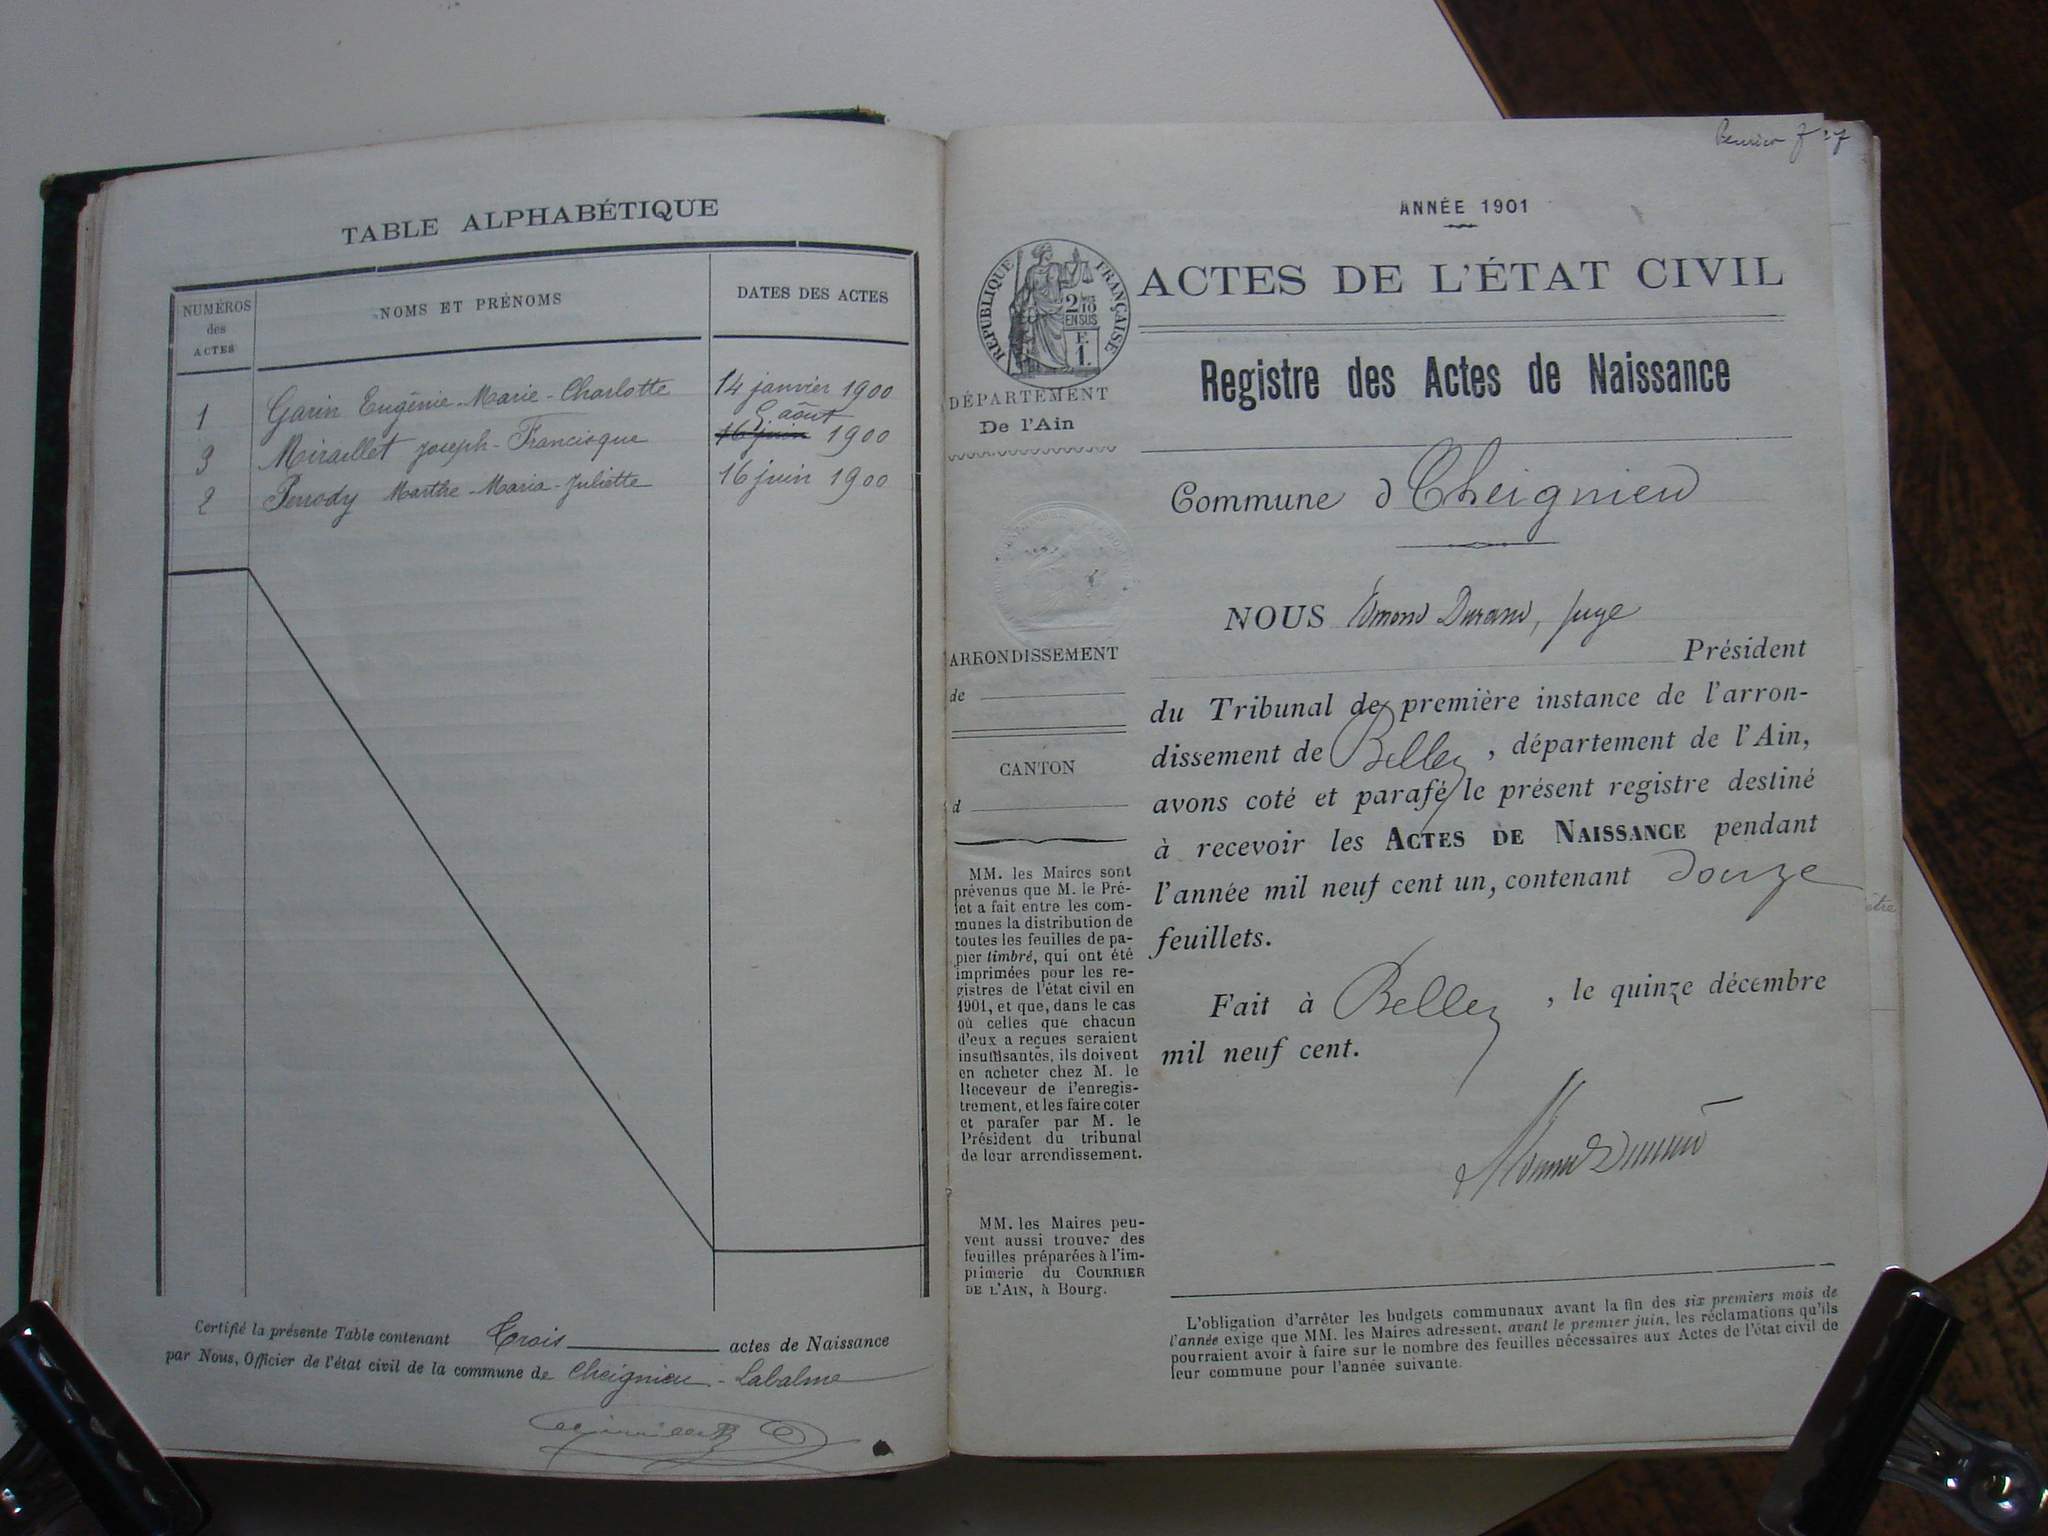 TABLE ALPHABÉTIQUE
NUMÉROS
des
ACTES
NOMS ET PRÉNOMS
DATES DES ACTES
1 Garin Eugénie-Marie-Charlotte 14 janvier 1900
5 août
3 Miraillet Joseph-Francisque 16 juin 1900
2 Perrody Marthe-Maria-Juliette 16 juin 1900
Certifié la présente Table contenant Trois actes de Naissance
par Nous, Officier de l'état civil de la commune de Cheignieu-Labalme
ANNÉE 1901
RÉPUBLIQUE FRANÇAISE
2/10
EN SUS
F.
1.
ACTES DE L'ÉTAT CIVIL
DÉPARTEMENT
De l'Ain
Registre des Actes de Naissance
Commune d Cheignieu
ARRONDISSEMENT
de
CANTON
d
MM. les Maires sont
prévenus que M. le Pré-
fet a fait entre les com-
munes la distribution de
toutes les feuilles de pa-
pier timbré, qui ont été
imprimées pour les re-
gistres de l'état civil en
1901, et que, dans le cas
où celles que chacun
d'eux a reçues seraient
insuffisantes, ils doivent
en acheter chez M. le
Receveur de l'enregis-
trement, et les faire coter
et parafer par M. le
Président du tribunal
de leur arrondissement.
MM. les Maires peu-
vent aussi trouver des
feuilles préparées à l'im-
primerie du COURRIER
DE L'AIN, à Bourg.
NOUS Edmond Durand, juge
Président
du Tribunal de première instance de l'arron-
dissement de Belley, département de l'Ain,
avons coté et parafé le présent registre destiné
à recevoir les ACTES DE NAISSANCE pendant
l'année mil neuf cent un, contenant douze
feuillets.
Fait à Belley, le quinze décembre
mil neuf cent.
Edmond Durand
L'obligation d'arrêter les budgets communaux avant la fin des six premiers mois de
l'année exige que MM. les Maires adressent, avant le premier juin, les réclamations qu'ils
pourraient avoir à faire sur le nombre des feuilles nécessaires aux Actes de l'état civil de
leur commune pour l'année suivante.